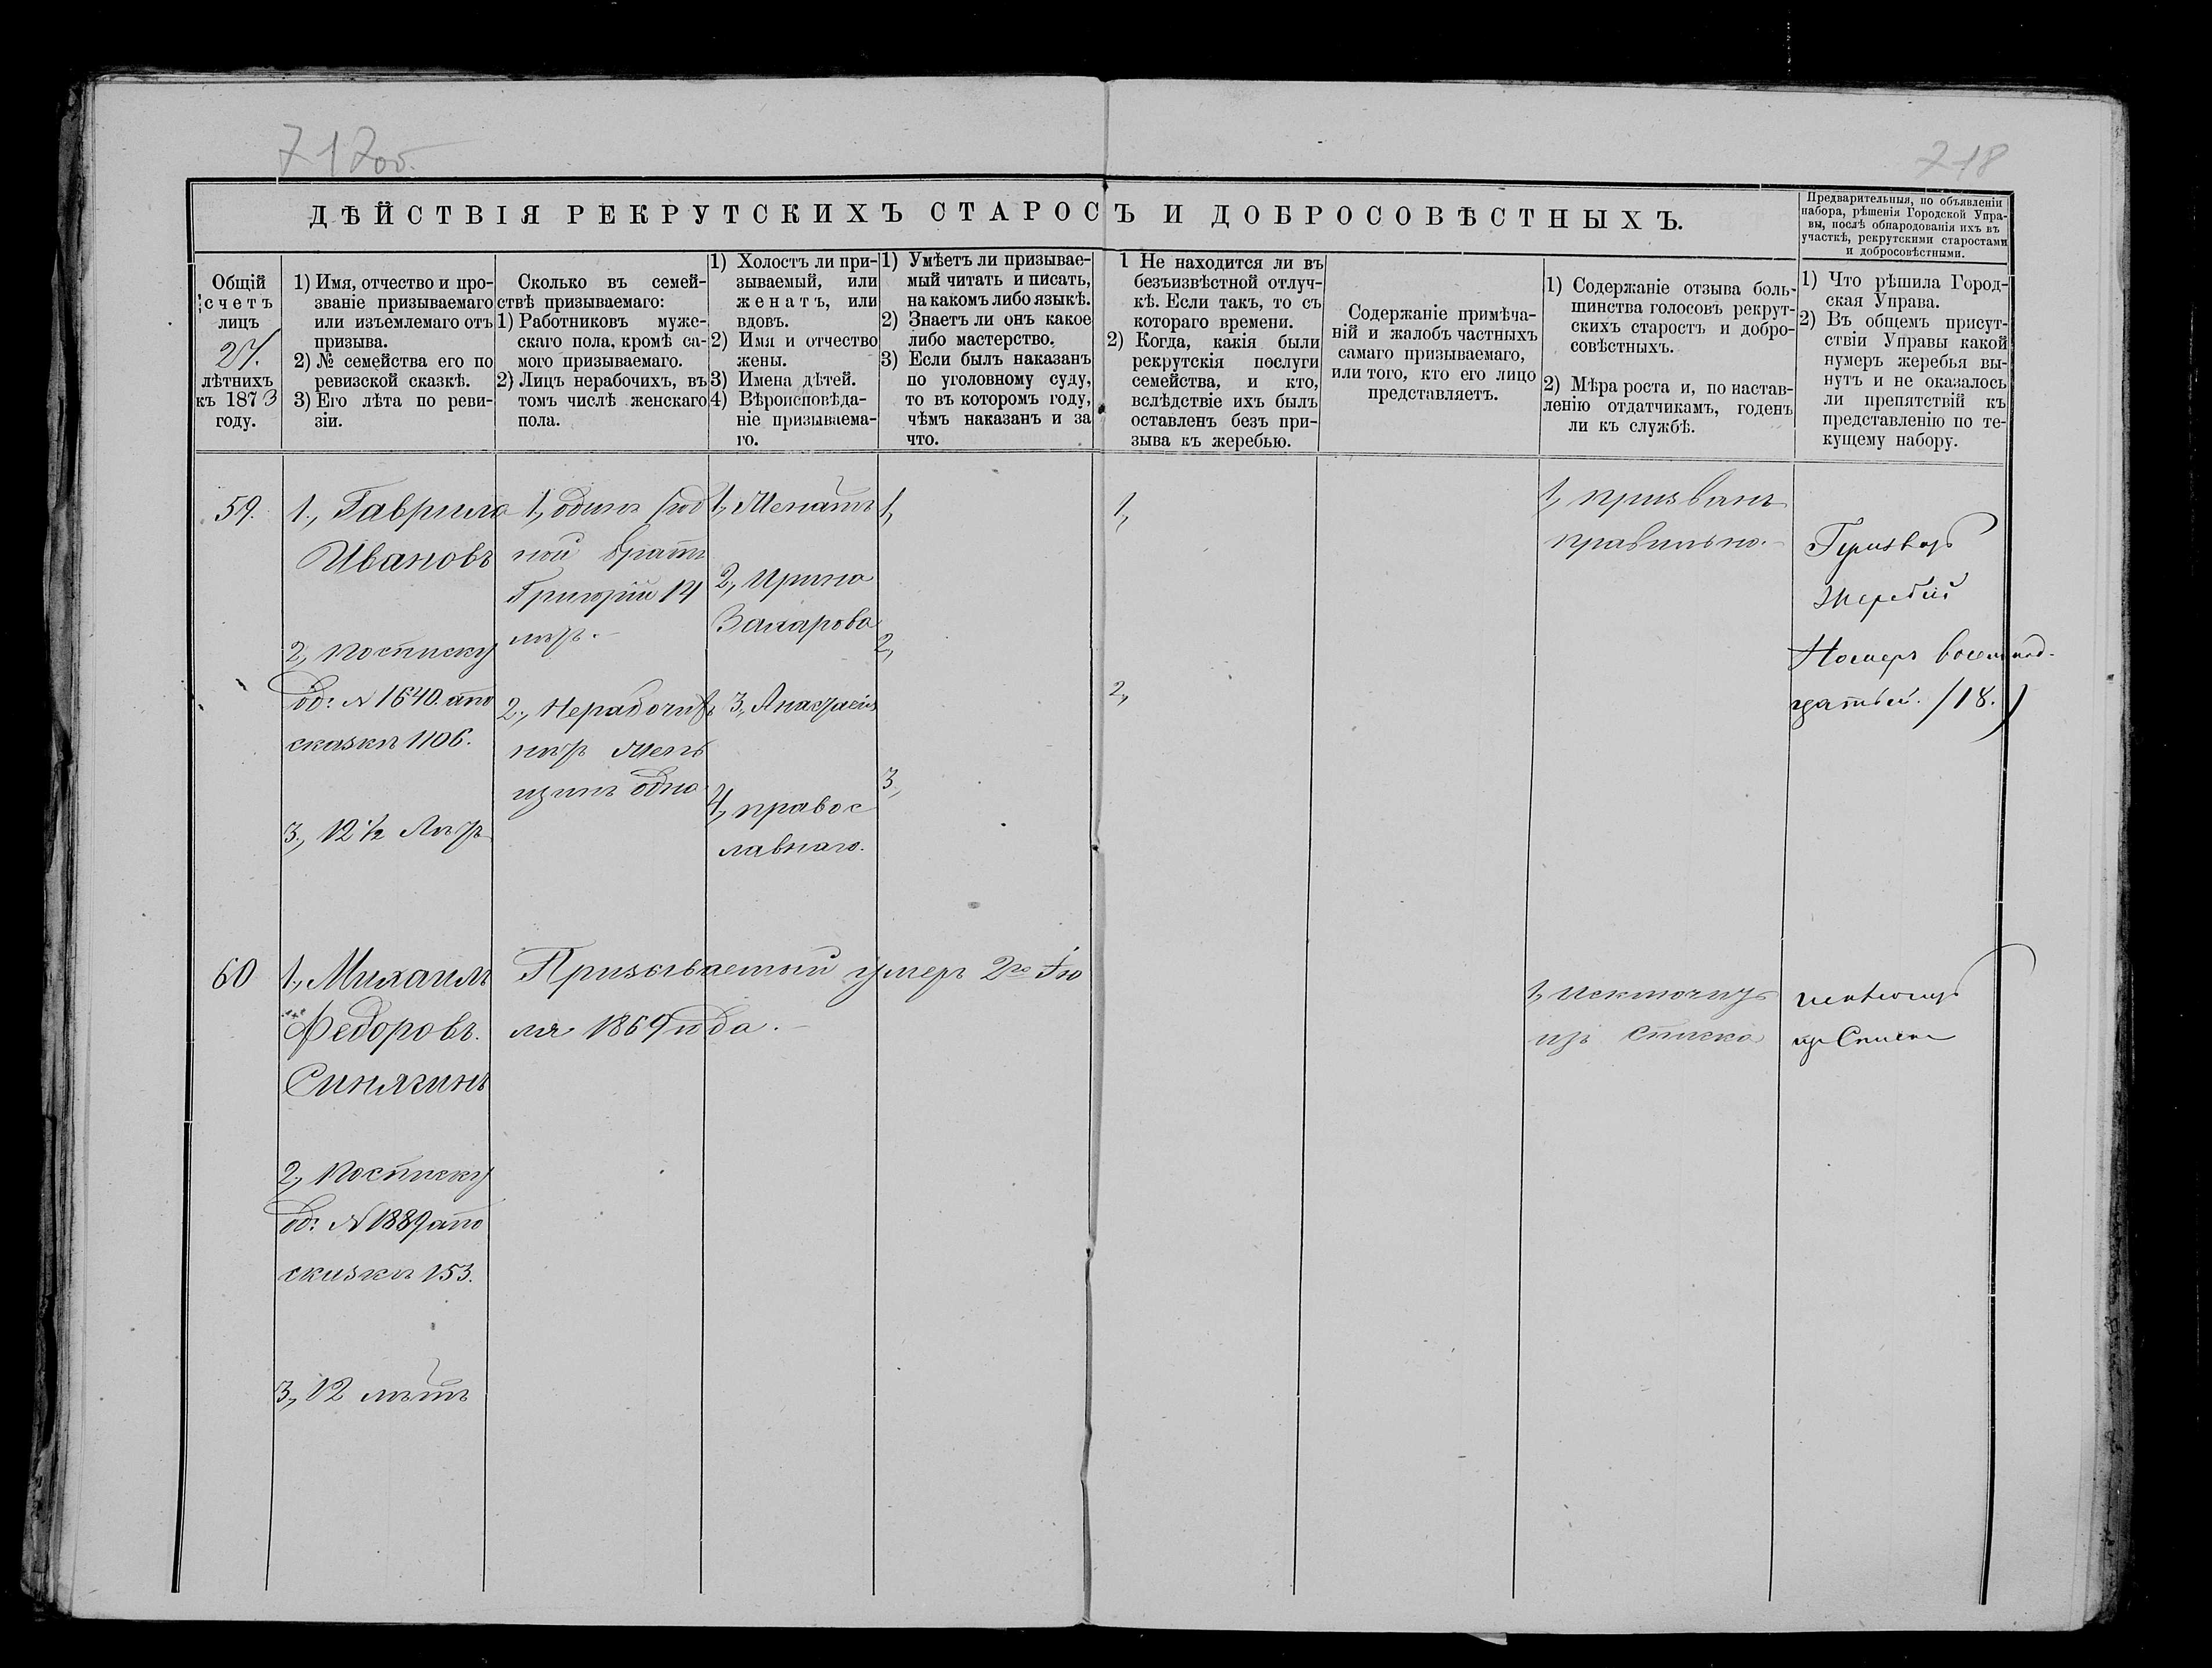 717 об.
718
ДѢЙСТВІЯ РЕКРУТСКИХЪ СТАРОСТЪ И ДОБРОСОВѢСТНЫХЪ.
Предварительныя, по объявленіи
набора, рѣшенія Городской Упра-
вы, послѣ обнародованія ихъ въ
участкѣ, рекрутскими старостами
и добросовѣстными.
Общій
счетъ
лицъ
27.
лѣтнихъ
къ 1873
году.
1) Имя, отчество и про-
званіе призываемаго
или изъемлемаго отъ
призыва.
2) № семейства его по
ревизской сказкѣ.
3) Его лѣта по реви-
зіи.
Сколько въ семей-
ствѣ призываемаго:
1) Работниковъ муже-
скаго пола, кромѣ са-
мого призываемаго.
2) Лицъ нерабочихъ, въ
томъ числѣ женскаго
пола.
1) Холостъ ли при-
зываемый, или
женатъ, или
вдовъ.
2) Имя и отчество
жены.
3) Имена дѣтей.
4) Вѣроисповѣда-
ніе призываема-
го.
1) Умѣетъ ли призывае-
мый читать и писать,
на какомъ либо языкѣ.
2) Знаетъ ли онъ какое
либо мастерство.
3) Если былъ наказанъ
по уголовному суду,
то въ которомъ году,
чѣмъ наказанъ и за
что.
1 Не находится ли въ
безъизвѣстной отлуч-
кѣ. Если такъ, то съ
котораго времени.
2) Когда, какія были
рекрутскія послуги
семейства, и кто,
вслѣдствіе ихъ былъ
оставленъ безъ при-
зыва къ жеребью.
Содержаніе примѣча-
ній и жалобъ частныхъ
самаго призываемаго,
или того, кто его лицо
представляетъ.
1) Содержаніе отзыва боль-
шинства голосовъ рекрут-
скихъ старостъ и добро-
совѣстныхъ.
2) Мѣра роста и, по настав-
ленію отдатчикамъ, годенъ
ли къ службѣ.
1) Что рѣшила Город-
ская Управа.
2) Въ общемъ присут-
ствіи Управы какой
нумеръ жеребья вы-
нутъ и не оказалось
ли препятствій къ
представленію по те-
кущему набору.
59.
1., Гаврила
Ивановъ
2, По списку
об: № 1640. а по
сказкѣ 1106.
3., 12 ½ Лѣтъ
1., одинъ род
ной братъ
Григорій 14
лѣтъ.
2., Нерабочихъ
нѣтъ Жен
щинъ одна
1., Женатъ
2., Ирина
Захарова
3., Анастасія
4, правос
лавнаго.
1,
2,
3,
1,
2,
1, призванъ
правильно.
Призвать
жеребій
Номеръ восемнад-
цатый. /18.)
60
1., Михаилъ
Федоровъ.
Синягинъ
2, По списку
об: № 1889 а по
сказкѣ 153.
3, 12 лѣтъ
Призываемый умеръ 2го Ію
ля 1869 года.
1, Исключить
изъ списка
исключить
изъ Списка